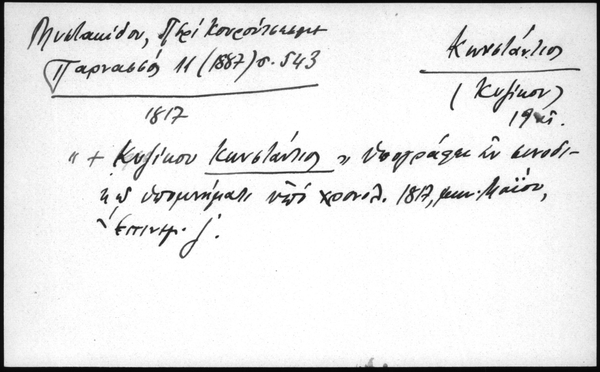 Μυστακίδου, Περί Κουρούτσεσμε
Παρνασσός 11 (1887) σ. 543
Κωνστάντιος
(Κυζίκου)
19 αἰ.
1817
" + Κυζίκου Κωνστάντιος " ὑπογράφει ἐν συνοδι-
κῷ ὑπομνήματι ὑπό χρονολ. 1817, μην. Μαΐου,
Ἐπινεμ. ζ'.